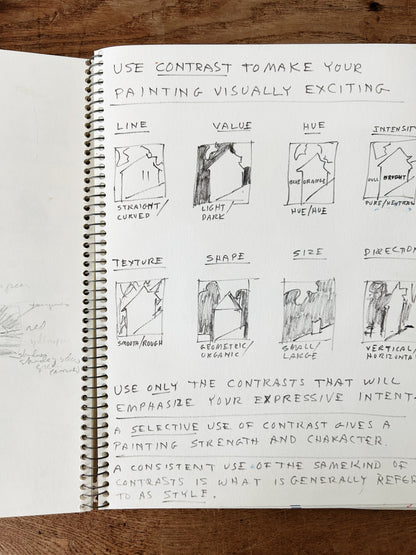 USE CONTRAST TO MAKE YOUR
PAINTING VISUALLY EXCITING
LINE VALUE HUE INTENSIT
BLUE ORANGE DULL BRIGHT
STRAIGHT/ LIGHT/ HUE/HUE PURE/NEUTRAL
CURVED DARK
TEXTURE SHAPE SIZE DIRECTION
SMOOTH/ROUGH GEOMETRIC/ SMALL/ VERTICAL/
ORGANIC LARGE HORIZONTA
USE ONLY THE CONTRASTS THAT WILL
EMPHASIZE YOUR EXPRESSIVE INTENT.
A SELECTIVE USE OF CONTRAST GIVES A
PAINTING STRENGTH AND CHARACTER.
A CONSISTENT USE OF THE SAME KIND OF
CONTRASTS IS WHAT IS GENERALLY REFER
TO AS STYLE.
red